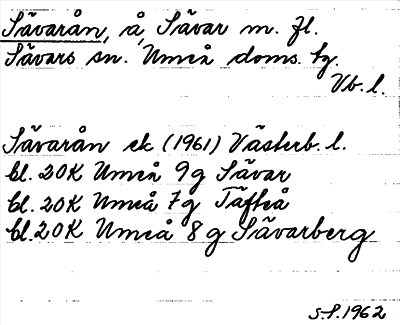 Sävarån, å, Sävar m. fl.
Sävars sn. Umeå doms. tg.
Vb. l.
Sävarån ek (1961) Västerb. l.
bl. 20K Umeå 9g Sävar
bl. 20K Umeå 7g Täfteå
bl. 20K Umeå 8g Sävarberg
S.L. 1962